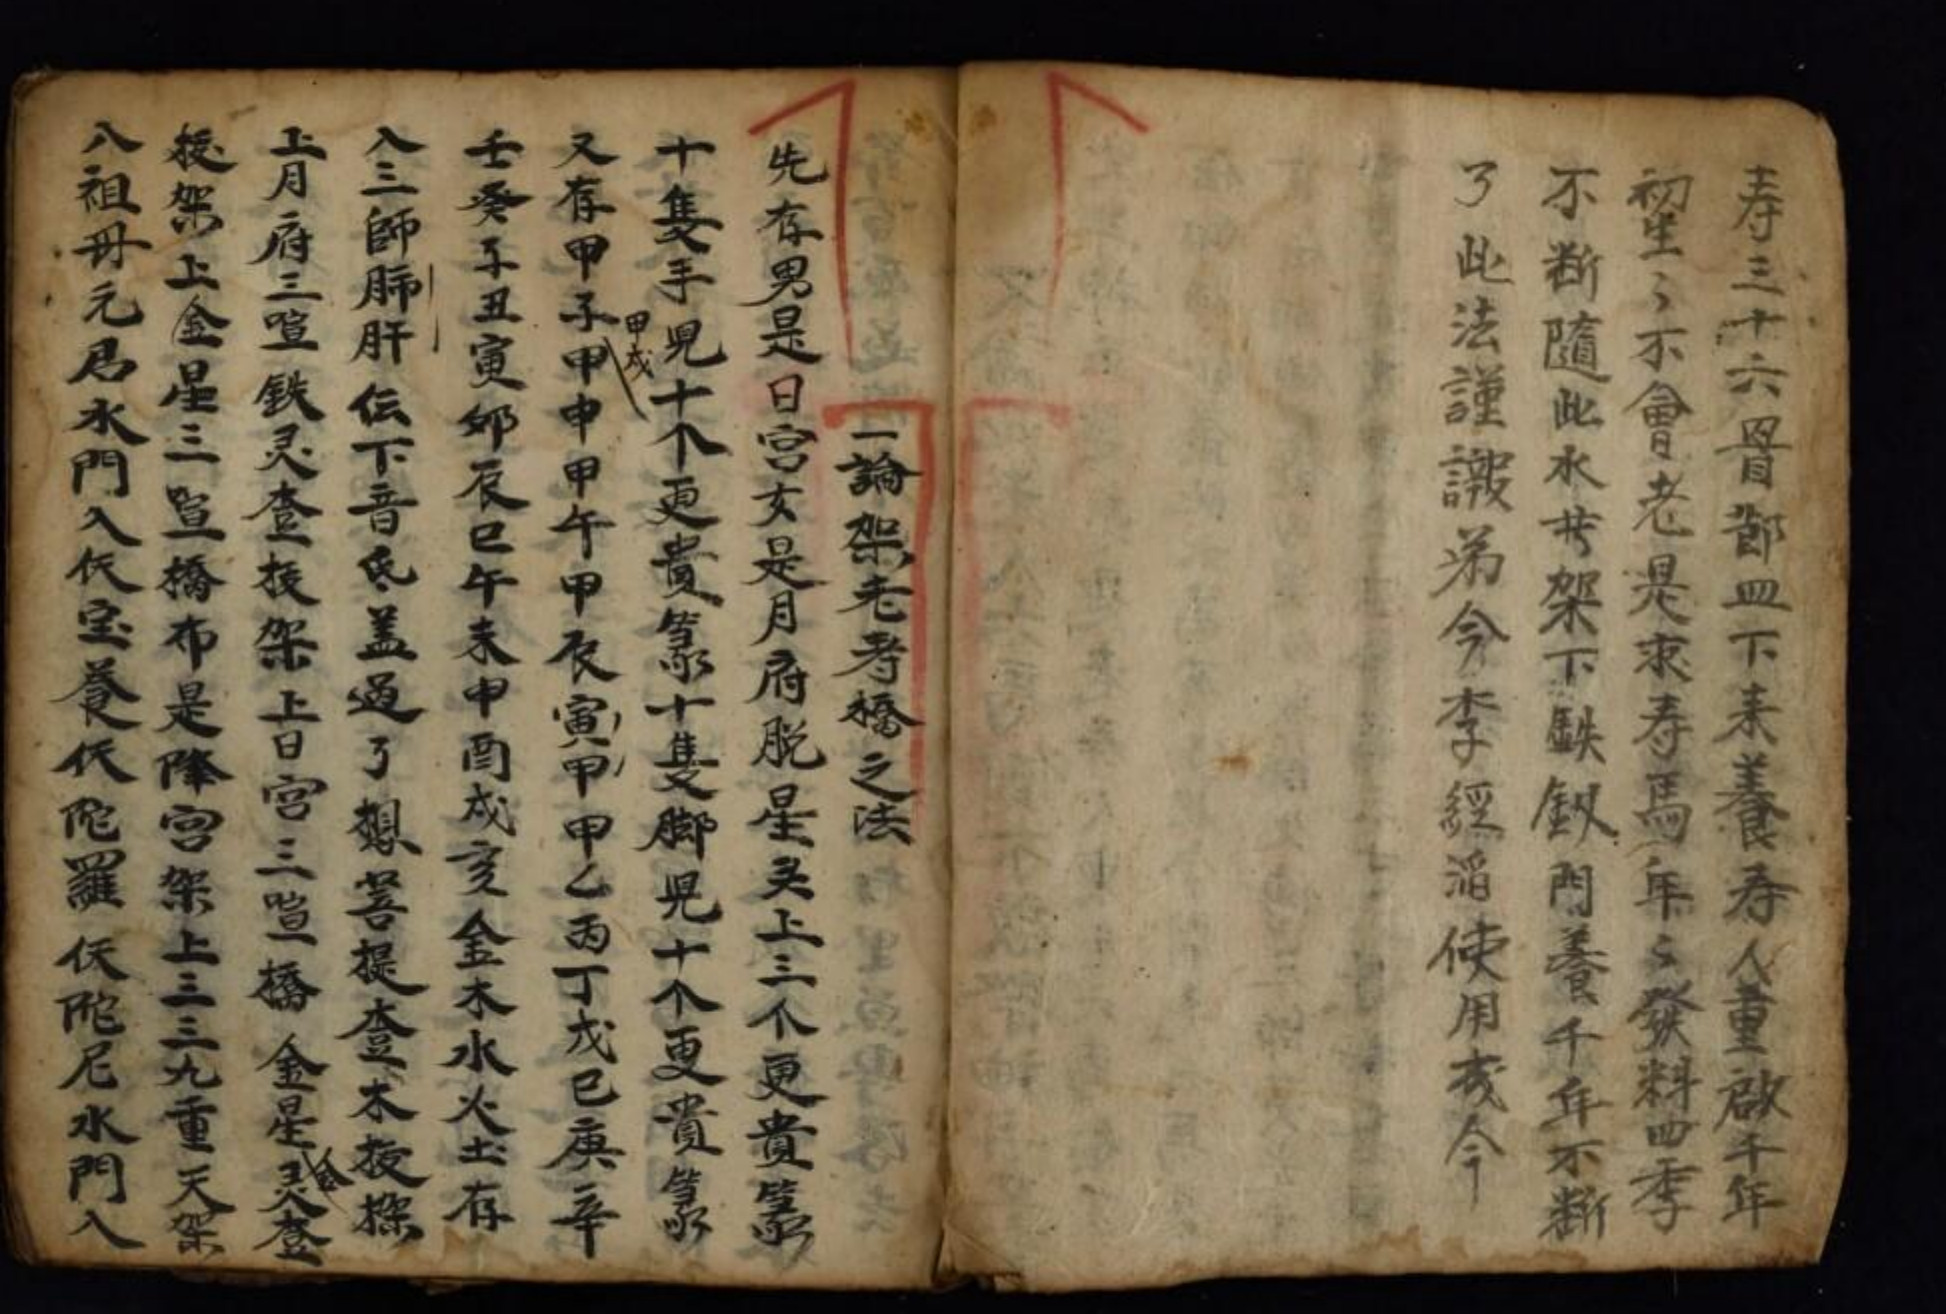 寿三十六罾部皿下来養寿人重啟千年
初生々不會老是求寿馬年々發料四季
不断隨此水共架下鉄釼門養千年不断
了此法謹譤弟今李經滔使用戋今
一論架老寿橋之法
先存男是日宮女是月府脱星头上三个更貴
十隻手児十个更貴十隻脚児十个更貴
又存甲子甲申甲午甲辰寅甲甲乙丙丁戊巳庚辛
甲戍
壬癸子丑寅卯辰巳午未申酉戍亥金木水火土存
入三師肺肝伝下音氐盖過了想菩提木
上月府三喧鉄灵架上日宮三喧橋金星灵
架上金星三喧橋布是降宮架上三三九重天架
八祖母元君水門入仸宝養仸陀羅仸陀尼水門入